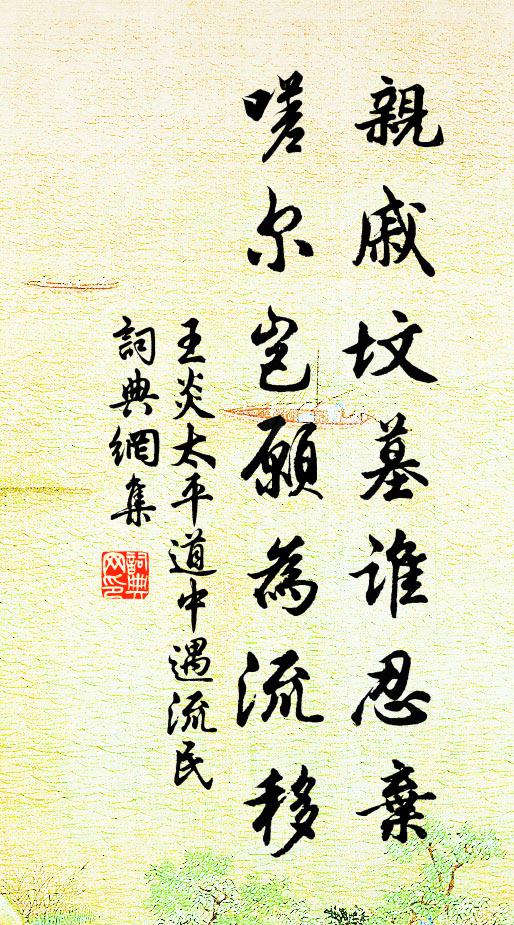 親戚墳墓誰忍棄
嗟尔豈願為流移
王炎太平道中遇流民
詞典網集
詞典网印